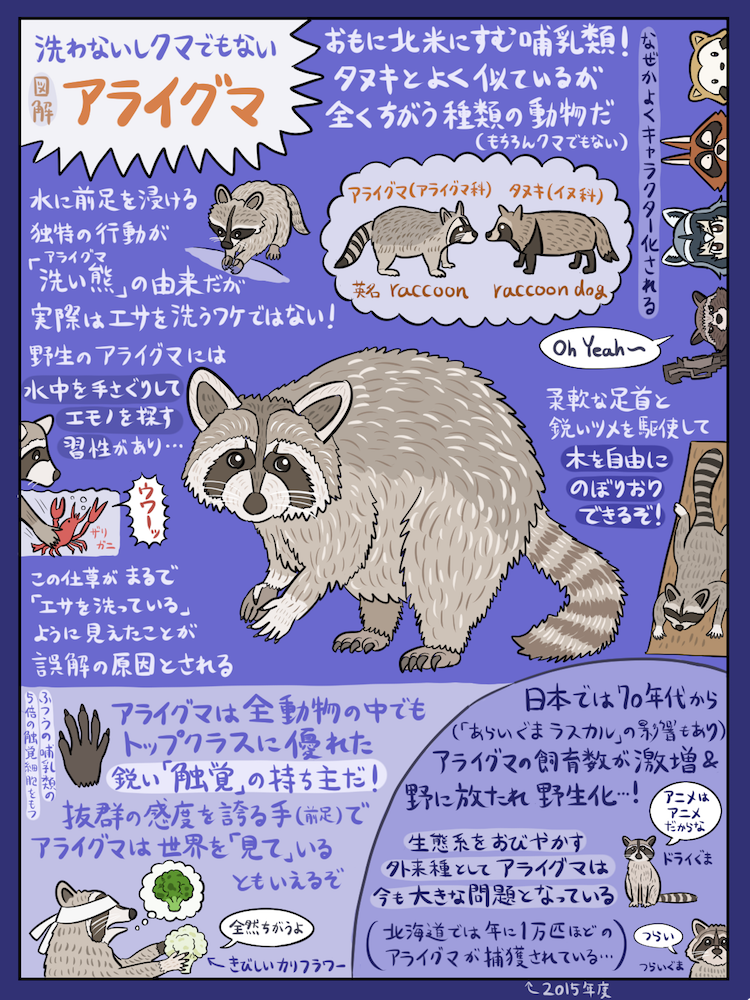 洗わないしクマでもない
図解
アライグマ
おもに北米にすむ哺乳類!
タヌキとよく似ているが
全くちがう種類の動物だ
(もちろんクマでもない)
なぜかよくキャラクター化される
水に前足を浸ける
独特の行動が
アライグマ
「洗い熊」の由来だが
実際はエサを洗うワケではない!
アライグマ(アライグマ科)
タヌキ(イヌ科)
英名 raccoon
raccoon dog
Oh Yeah〜
野生のアライグマには
水中を手さぐりして
エモノを探す
習性があり…
ウワーッ
ザリ
ガニ
この仕草がまるで
「エサを洗っている」
ように見えたことが
誤解の原因とされる
柔軟な足首と
鋭いツメを駆使して
木を自由に
のぼりおり
できるぞ!
ふつうの哺乳類の
5倍の触覚細胞をもつ
アライグマは全動物の中でも
トップクラスに優れた
鋭い「触覚」の持ち主だ!
抜群の感度を誇る手(前足)で
アライグマは世界を「見て」いる
ともいえるぞ
全然ちがうよ
←きびしいカリフラワー
日本では70年代から
(「あらいぐまラスカル」の影響もあり)
アライグマの飼育数が激増&
野に放たれ野生化…!
アニメは
アニメ
だからな
ドライぐま
生態系をおびやかす
外来種としてアライグマは
今も大きな問題となっている
(北海道では年に1万匹ほどの
アライグマが捕獲されている…)
つらい
つらいぐま
↖2015年度